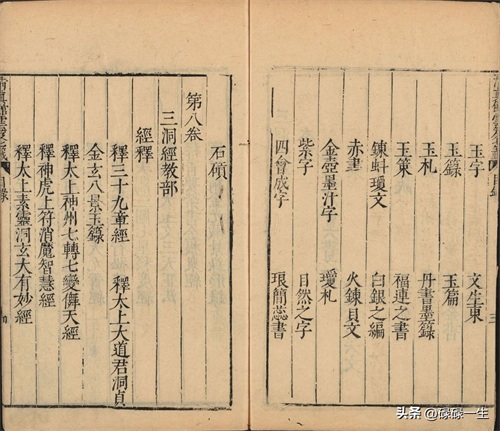 玉字 文生東
玉籙 玉篇
玉札 丹書墨籙
玉策 福連之書
瓊文 白銀之編
赤書 火鍊真文
金壺墨汁字 瓊札
紫字 自然之字
四會成字 琅簡蕊書
石碩
第八卷
三洞經教部
經釋
釋三十九章經 釋太上大道君洞真
金玄八景玉籙
釋太上神州七轉七變儛天經
釋神虎上符消魔智慧經
釋太上素靈洞玄大有妙經
目錄
头条 @碌碌一生